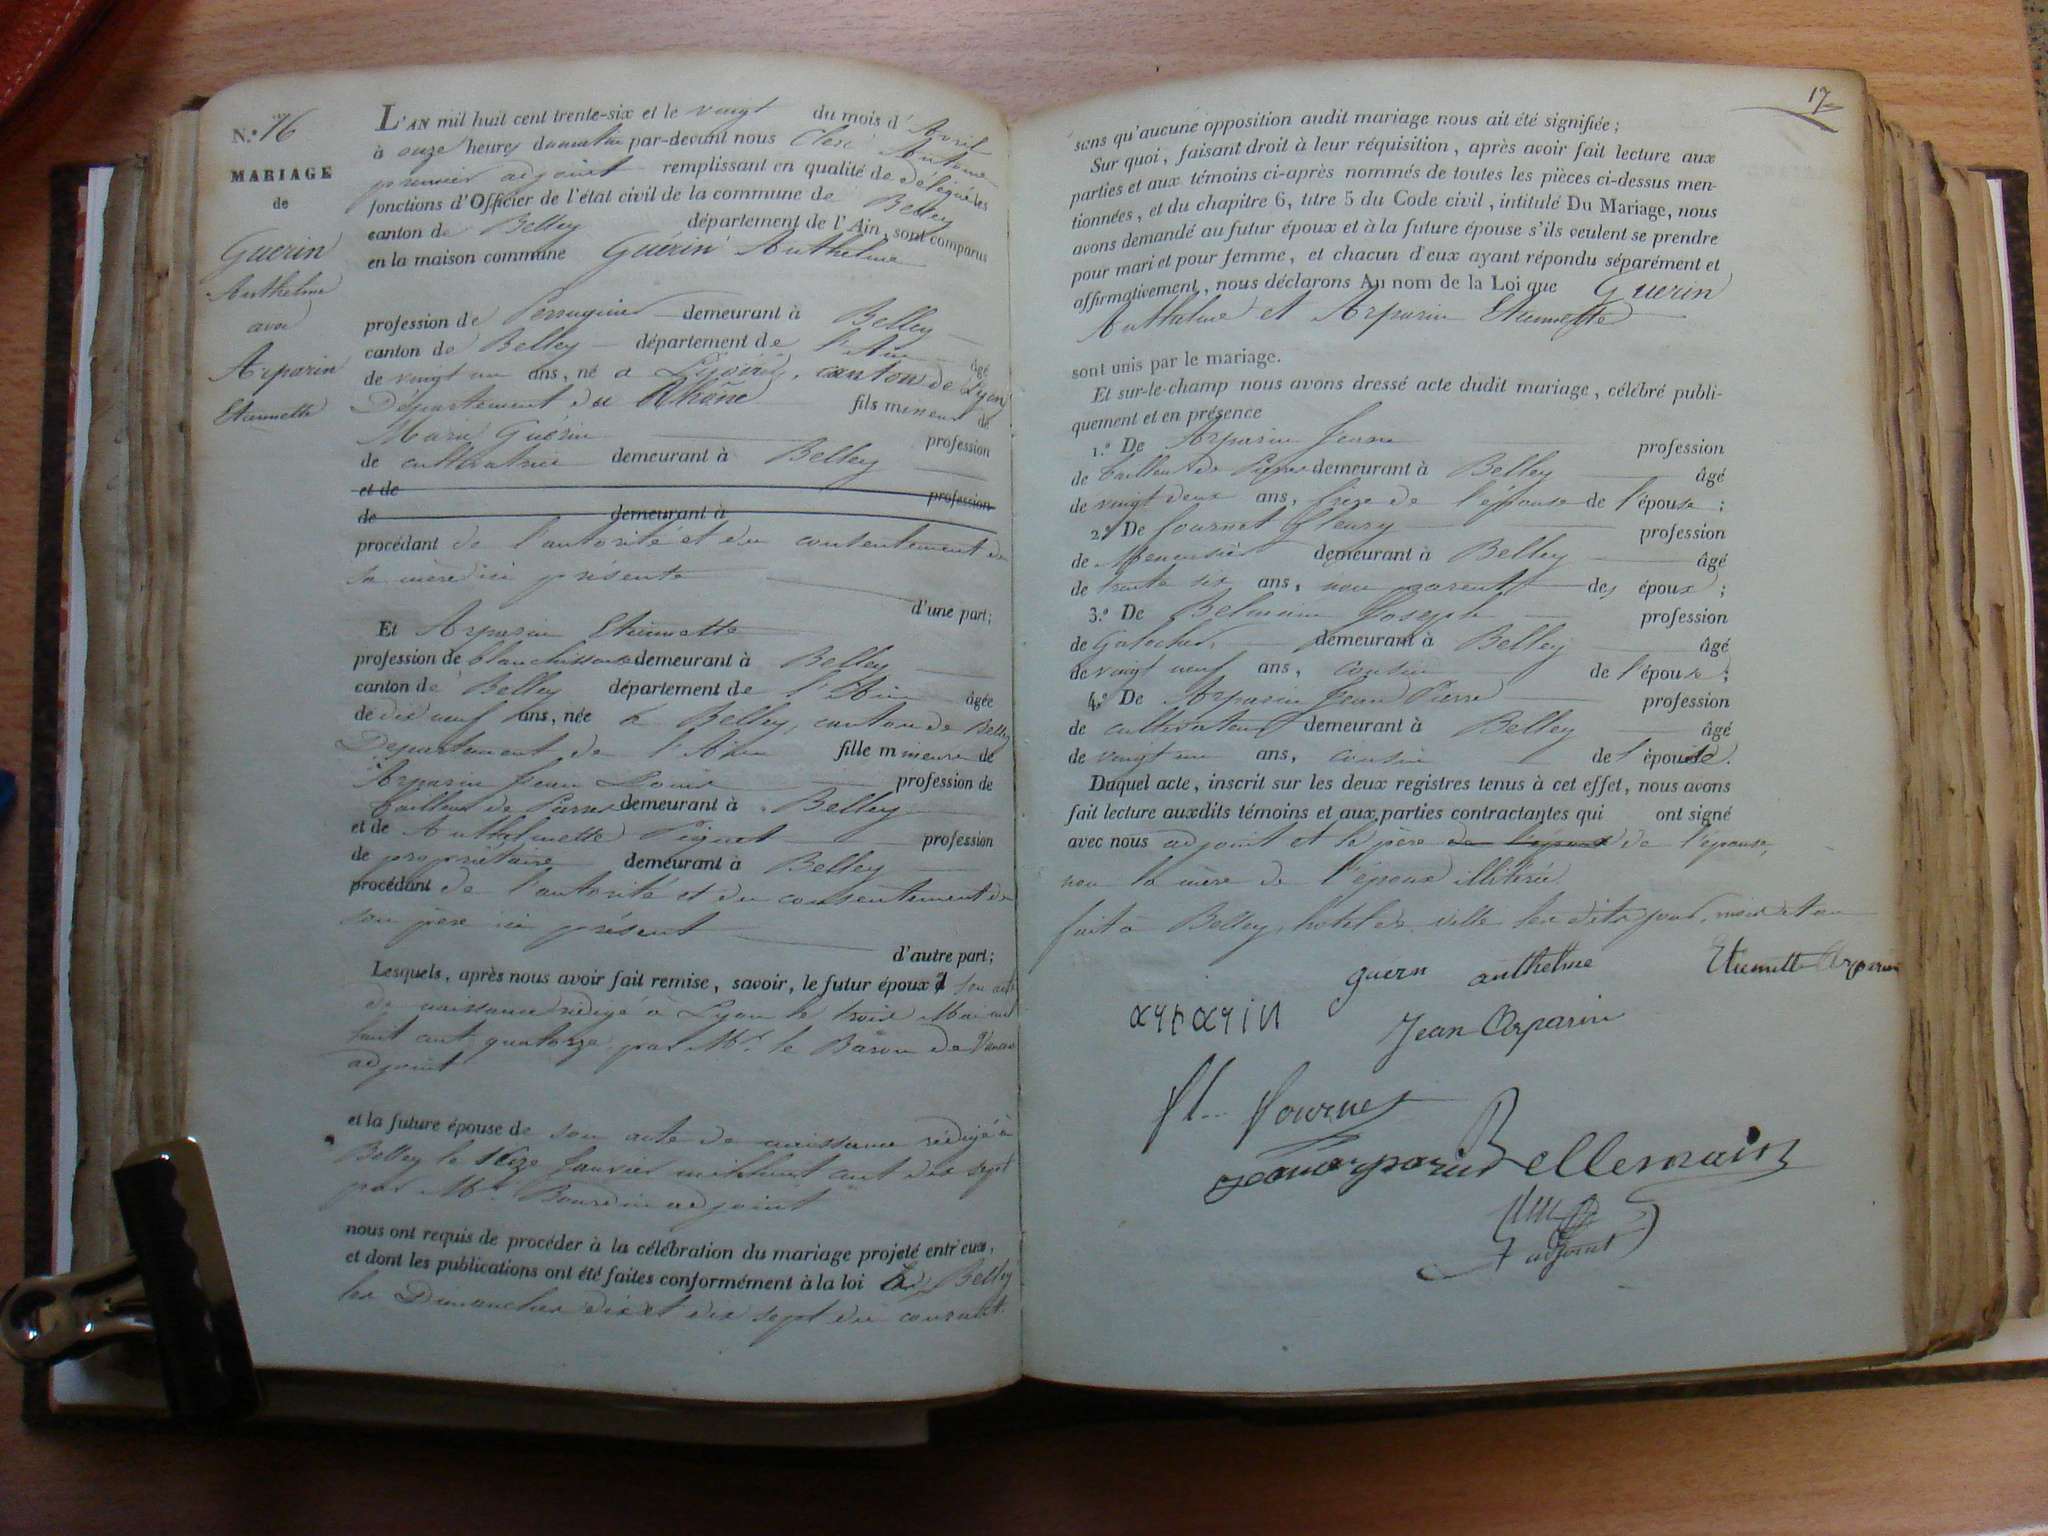 N.° 16
MARIAGE
de
Guerin
Anthelme
avec
Arparin
Etiennette
L'AN mil huit cent trente-six et le vingt du mois d'Avril
à onze heures du matin par-devant nous Antoine
premier adjoint remplissant en qualité de délégué les
fonctions d'Officier de l'état civil de la commune de Belley
canton de Belley département de l'Ain, sont comparus
en la maison commune Guérin Anthelme
profession de Perruquier demeurant à Belley
canton de Belley département de l'Ain âgé
de vingt un ans, né à Lyon, canton de Lyon
Département du Rhône fils mineur de
Marie Guérin profession
de cultivatrice demeurant à Belley
et de profession
de demeurant à
procédant de l'autorité et du consentement de
sa mère ici présente
d'une part;
Et Arparin Etiennette
profession de blanchisseuse demeurant à Belley
canton de Belley département de l'Ain âgée
de dix neuf ans, née à Belley, canton de Belley
Département de l'Ain fille mineure de
Arparin Jean Louis profession de
tailleur de Pierres demeurant à Belley
et de Anthelmette Piquet profession
de propriétaire demeurant à Belley
procédant de l'autorité et du consentement de
son père ici présent
d'autre part;
Lesquels, après nous avoir fait remise, savoir, le futur époux d son acte
de naissance rédigé à Lyon le trois Mai mil
huit cent quatorze par Mr. le Baron de
adjoint
et la future épouse de son acte de naissance rédigé à
Belley le seize Janvier mil huit cent dix sept
par Mr. Bourdin adjoint
nous ont requis de procéder à la célébration du mariage projeté entr'eux,
et dont les publications ont été faites conformément à la loi à Belley
les Dimanches dix et dix sept du courant.
17
sans qu'aucune opposition audit mariage nous ait été signifiée;
Sur quoi, faisant droit à leur réquisition, après avoir fait lecture aux
parties et aux témoins ci-après nommés de toutes les pièces ci-dessus men-
tionnées, et du chapitre 6, titre 5 du Code civil, intitulé Du Mariage, nous
avons demandé au futur époux et à la future épouse s'ils veulent se prendre
pour mari et pour femme, et chacun d'eux ayant répondu séparément et
affirmativement, nous déclarons Au nom de la Loi que Guerin
Anthelme et Arparin Etiennette
sont unis par le mariage.
Et sur-le-champ nous avons dressé acte dudit mariage, célébré publi-
quement et en présence
1.° De Arparin Jean profession
de tailleur de Pierres demeurant à Belley âgé
de vingt deux ans, frère de l'épouse de l'épouse;
2.° De fournet fleury profession
de Menuisier demeurant à Belley âgé
de trente six ans, non parent des époux;
3.° De Belmain Joseph profession
de Galochier demeurant à Belley âgé
de vingt neuf ans, cousin de l'épouse;
4.° De Arparin Jean Pierre profession
de cultivateur demeurant à Belley âgé
de vingt un ans, cousin de l'épouse.
Duquel acte, inscrit sur les deux registres tenus à cet effet, nous avons
fait lecture auxdits témoins et aux parties contractantes qui ont signé
avec nous adjoint et le père de l'époux de l'épouse,
non la mère de l'époux illitérée
fait à Belley, hotel de ville les dits jour, mois et an
guern anthelme Etiennette Arparin
arparin Jean Arparin
fl.. fournet
jean arparin Bellemain
adjoint